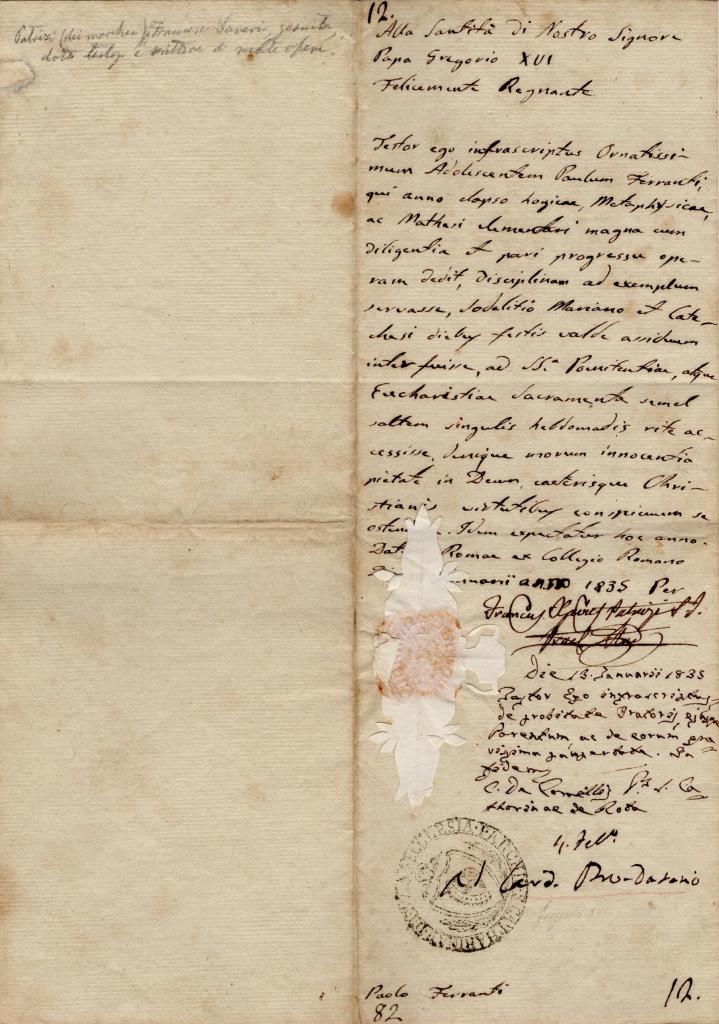 Patrizi (dei marchesi) Francesco Saveri, gesuita
dotto teologo e scrittore di molte opere.
12.
Alla Santità di Nostro Signore
Papa Gregorio XVI
Felicemente Regnante
Testor ego infrascriptus Ornatissi-
mum Adolescentem Paulum Ferranti,
qui anno elapso Logicae, Metaphysicae,
ac Mathesi elementari magna cum
diligentia et pari progressu ope-
ram dedit, Disciplinam ad exemplum
servasse, Sodalitio Mariano et Cate-
chesi diebus festis valde assiduum
interfuisse, ad SS.a Poenitentiae, atque
Eucharistiae Sacramenta semel
saltem singulis hebdomadis rite ac-
cessisse, denique morum innocentia
pietate in Deum, caeterisque Chri-
stianis virtutibus conspicuum se
. Idem expectatur hoc anno.
Romae ex Collegio Romano
anno 1835 Per
Patrizi S. J.
Die 13. Januarii 1835
Testor Ego infrascriptus
de probitate Oratoris,
Parentum ac de eorum
C. De P. S. Ca
tharinae de Rota
4.
Card. Pro-Datario
Gregorio XVI
ECCLESIA PAROCH
Paolo Ferranti
82
12.